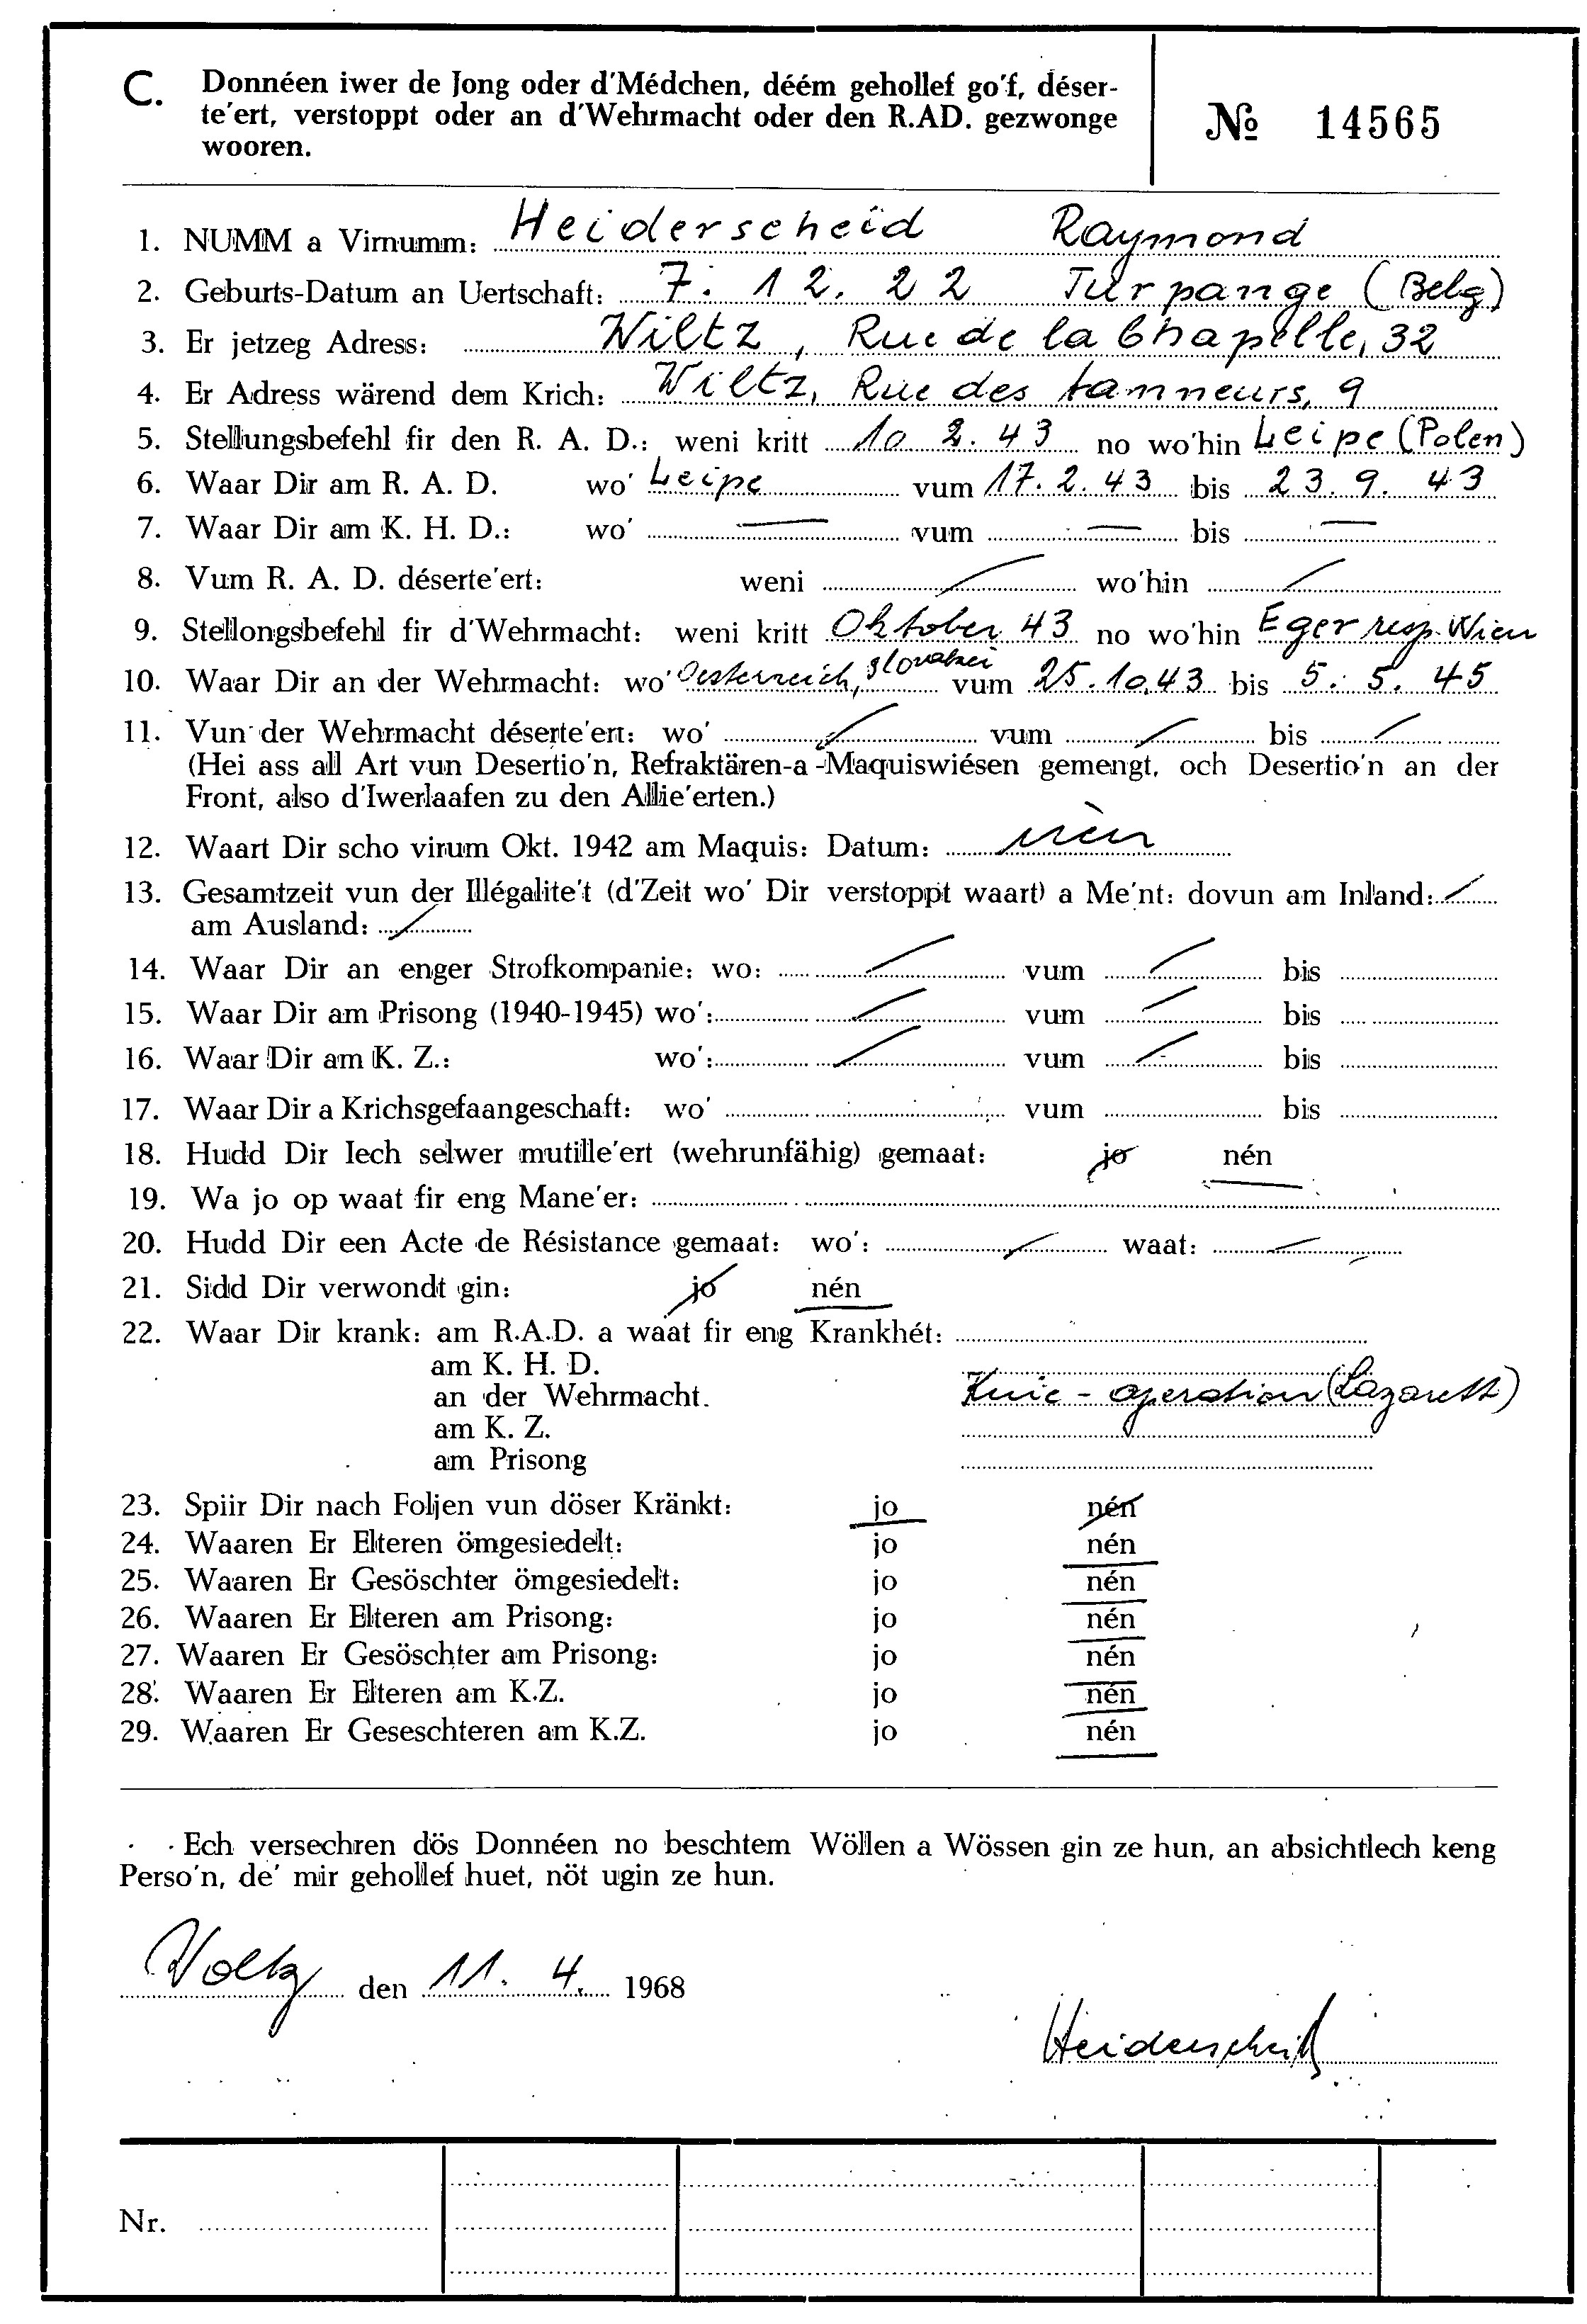 C. Donnéen iwer de Jong oder d'Médchen, déém gehollef go'f, déser-
te'ert, verstoppt oder an d'Wehrmacht oder den R.AD. gezwonge
wooren.
№ 14565
1. NUMM a Virnumm: Heiderscheid Raymond
2. Geburts-Datum an Uertschaft: 7. 12. 22 Turpange (Belg)
3. Er jetzeg Adress: Wiltz, Rue de la Chapelle, 32
4. Er Adress wärend dem Krich: Wiltz, Rue des tanneurs, 9
5. Stellungsbefehl fir den R. A. D.: weni kritt 10 2. 43 no wo'hin Leipe (Polen)
6. Waar Dir am R. A. D. wo' Leipe vum 17. 2. 43 bis 23. 9. 43
7. Waar Dir am K. H. D.: wo' — vum — bis —
8. Vum R. A. D. déserte'ert: weni / wo'hin /
9. Stellongsbefehl fir d'Wehrmacht: weni kritt Oktober 43 no wo'hin Eger resp. Wien
10. Waar Dir an der Wehrmacht: wo' Oesterreich, Slovakei vum 25. 10. 43 bis 5. 5. 45
11. Vun der Wehrmacht déserte'ert: wo' / vum / bis /
(Hei ass all Art vun Desertio'n, Refraktären-a-Maquiswiésen gemengt, och Desertio'n an der
Front, also d'Iwerlaafen zu den Allie'erten.)
12. Waart Dir scho virum Okt. 1942 am Maquis: Datum: nèn
13. Gesamtzeit vun der Illégalite't (d'Zeit wo' Dir verstoppt waart) a Me'nt: dovun am Inland: /
am Ausland: /
14. Waar Dir an enger Strofkompanie: wo: / vum / bis
15. Waar Dir am Prisong (1940-1945) wo': / vum / bis
16. Waar Dir am K. Z.: wo': / vum / bis
17. Waar Dir a Krichsgefaangeschaft: wo' vum bis
18. Hudd Dir Iech selwer mutille'ert (wehrunfähig) gemaat: jo nén
19. Wa jo op waat fir eng Mane'er:
20. Hudd Dir een Acte de Résistance gemaat: wo': / waat: /
21. Sidd Dir verwondt gin: jo nén
22. Waar Dir krank: am R.A.D. a waat fir eng Krankhét:
am K. H. D.
an der Wehrmacht. Knie-operation (Lazarett)
am K. Z.
am Prisong
23. Spiir Dir nach Foljen vun döser Kränkt: jo nén
24. Waaren Er Elteren ömgesiedelt: jo nén
25. Waaren Er Gesöschter ömgesiedelt: jo nén
26. Waaren Er Elteren am Prisong: jo nén
27. Waaren Er Gesöschter am Prisong: jo nén
28. Waaren Er Elteren am K.Z. jo nén
29. Waaren Er Geseschteren am K.Z. jo nén
Ech versechren dös Donnéen no beschtem Wöllen a Wössen gin ze hun, an absichtlech keng
Perso'n, de' mir gehollef huet, nöt ugin ze hun.
den 11. 4. 1968
Heiderscheid
Nr.